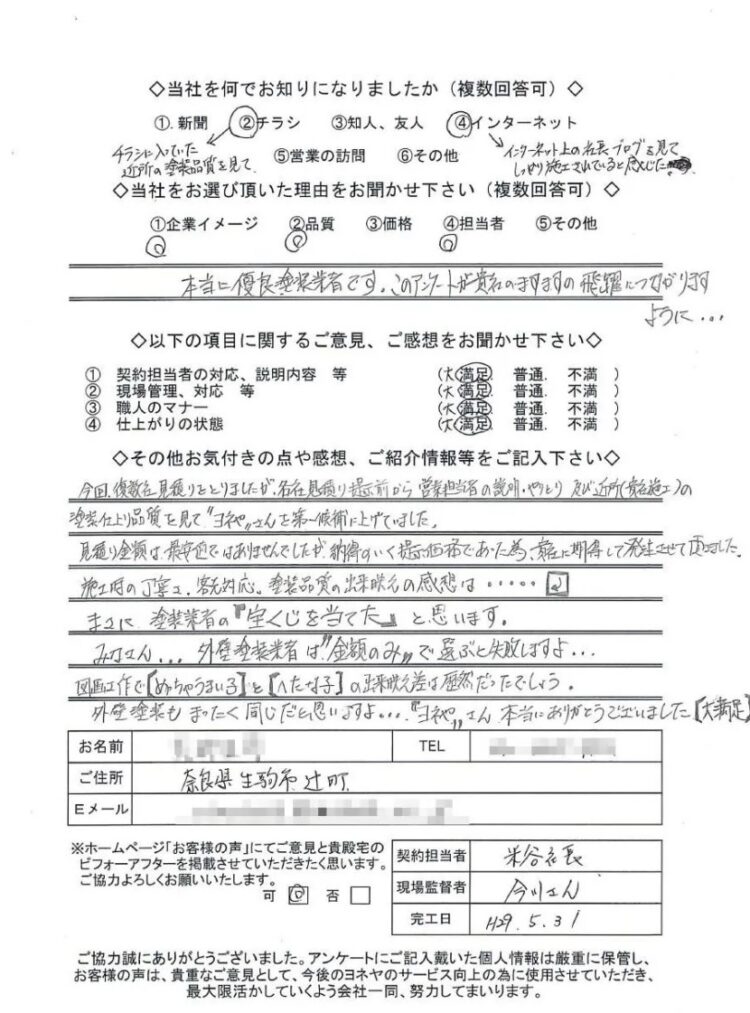 ◇当社を何でお知りになりましたか（複数回答可）◇
①. 新聞　②チラシ　③知人、友人　④インターネット
チラシに入っていた
近所の塗装品質を見て
⑤営業の訪問　⑥その他
インターネット上の社長ブログを見て
しっかり施工されていると感じた
◇当社をお選び頂いた理由をお聞かせ下さい（複数回答可）◇
①企業イメージ　②品質　③価格　④担当者　⑤その他
本当に優良塗装業者です。このアンケートが貴社のますますの飛躍につながります
ように...
◇以下の項目に関するご意見、ご感想をお聞かせ下さい◇
①　契約担当者の対応、説明内容　等　（大満足．普通．不満　）
②　現場管理、対応　等　（大満足．普通．不満　）
③　職人のマナー　（大満足．普通．不満　）
④　仕上がりの状態　（大満足．普通．不満　）
◇その他お気付きの点や感想、ご紹介情報等をご記入下さい◇
今回、複数社見積りをとりましたが、各社見積り提示前から営業担当者の説明・やりとり 及び近所(貴社施工)の
塗装仕上り品質を見て"ヨネヤ"さんを第一候補に上げていました。
見積り金額は最安値ではありませんでしたが納得のいく提示価格であった為、貴社に期待して発注させて頂きました。
施工時の丁寧さ、客先対応。塗装品質の出来映えの感想は・・・・・
まさに 塗装業者の『宝くじを当てた』と思います。
みなさん... 外壁塗装業者は"金額のみ"で選ぶと失敗しますよ...
図画工作で【めっちゃうまい子】と【へたな子】の出来映え差は歴然だったでしょう。
外壁塗装もまったく同じだと思いますよ...."ヨネヤ"さん 本当にありがとうございました【大満足】
お名前　TEL
ご住所　奈良県生駒市辻町
Eメール
※ホームページ「お客様の声」にてご意見と貴殿宅の
ビフォーアフターを掲載させていただきたく思います。
ご協力よろしくお願いいたします。
可　否
契約担当者　米谷社長
現場監督者　今川さん
完工日　H29.5.31
ご協力誠にありがとうございました。アンケートにご記入戴いた個人情報は厳重に保管し、
お客様の声は、貴重なご意見として、今後のヨネヤのサービス向上の為に使用させていただき、
最大限活かしていくよう会社一同、努力してまいります。